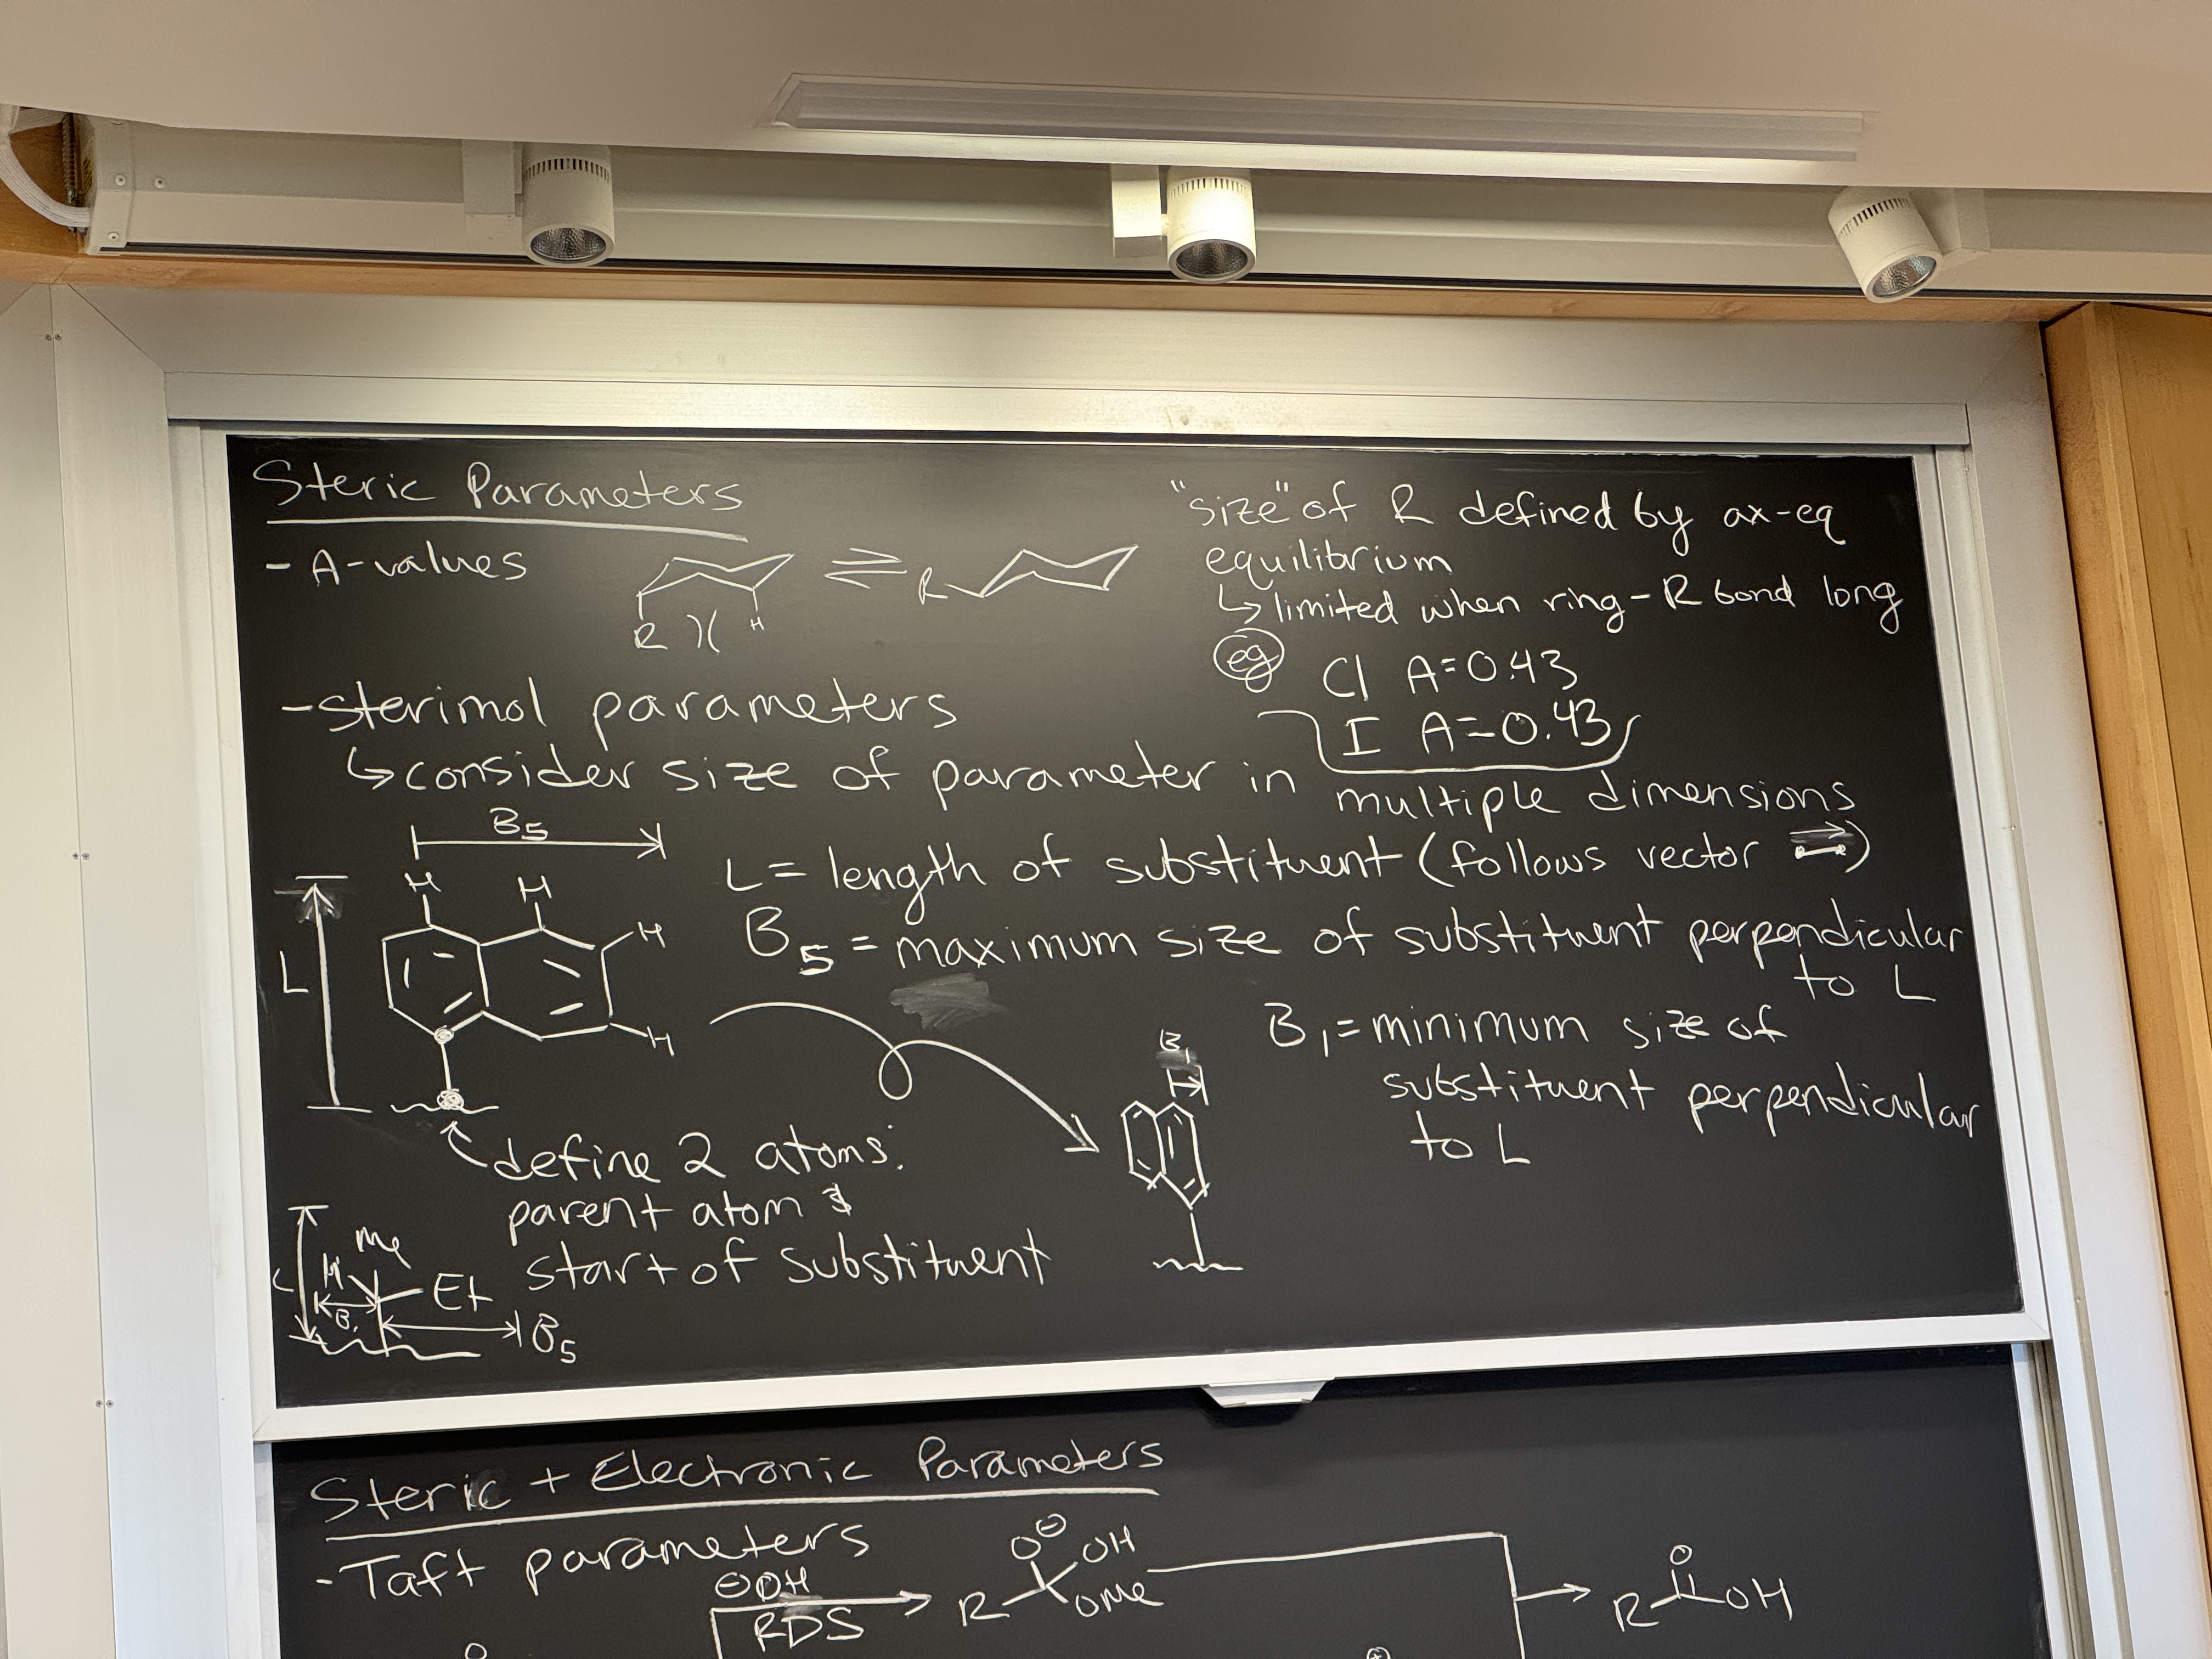 Steric Parameters
- A-values
R H
R
"size" of R defined by ax-eq
equilibrium
↳ limited when ring-R bond long
eg Cl A=0.43
I A=0.43
- sterimol parameters
↳ consider size of parameter in multiple dimensions
B5
L
H H
H
H
L = length of substituent (follows vector →)
B5 = maximum size of substituent perpendicular
to L
B1 = minimum size of
substituent perpendicular
to L
B1
define 2 atoms:
parent atom &
start of substituent
L
Me
H
Et
B1
B5
Steric + Electronic Parameters
- Taft parameters
⊖OH
RDS
O⊖ OH
R OMe
O
R OH
O
⊕